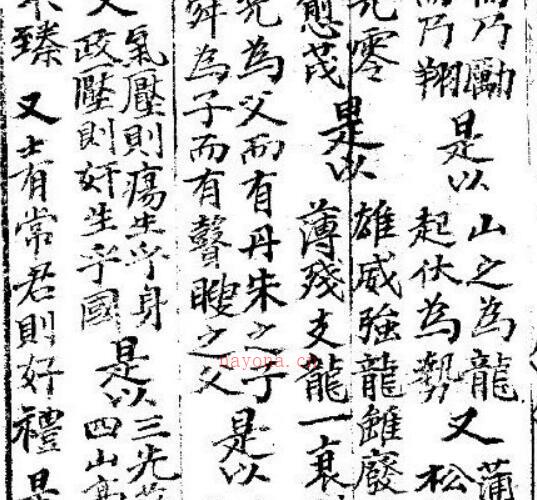 乃勵
乃翔
是以
山之為龍
起伏為勢
又
蒲
松
零
愈茂
是以
雄威強龍雖廢
薄殘支龍一衰
堯為父而有丹朱之子
舜為子而有瞽瞍之父
是以
氣壓則瘍生乎身
政壓則奸生乎國
是以
三光
四山高
臻
又
士有常君則好禮
是
nayona.cn